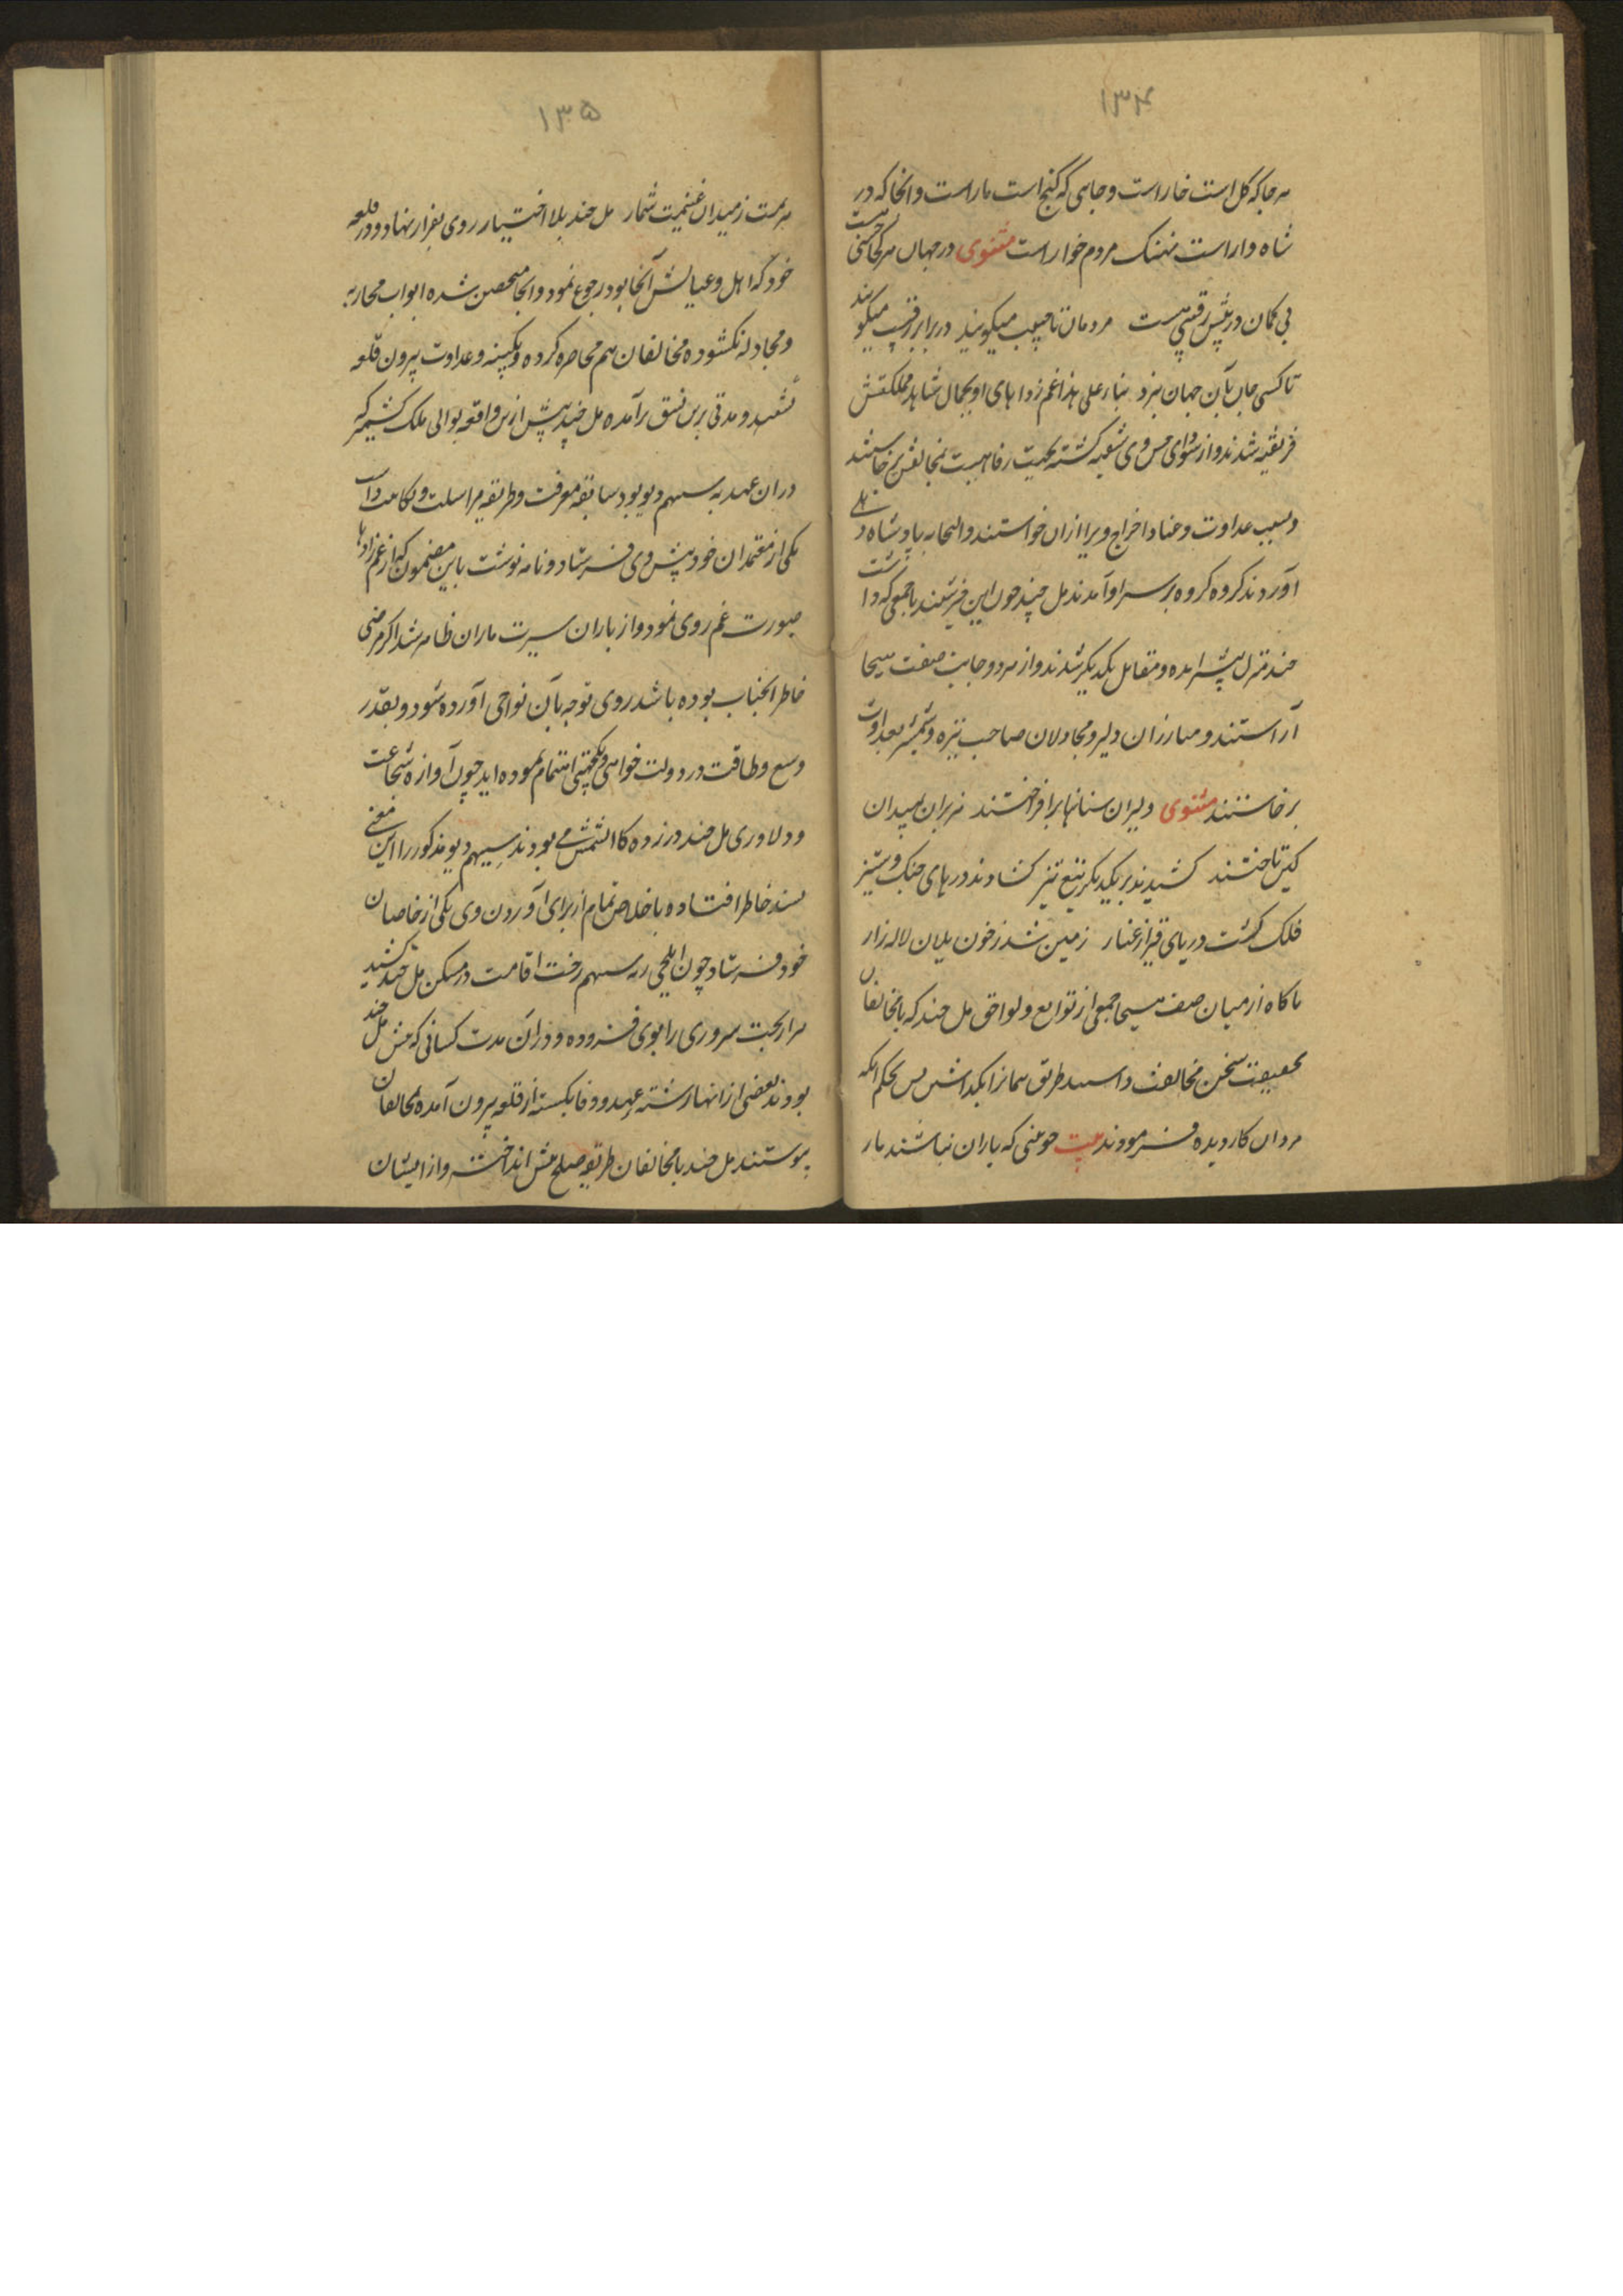 ۱۳۴
هرجاکه کل است خار است و جاهی که کنج است مار است و انجا که در
شاه وار است نهنک مردم خوار است مثنوی در جهان هر کجا حبیبی هست
بی کمان در پیش رقیبی هست مردمان تا حبیب میکویند در برابر رقیب میکویند
تا کسی جان بآن جهان نبرد بناء علی هذا عم زادهای او بجمال شاهد مملکتش
فریفته شدند و از وی کشته بمخالفتش برخاستند
و بسبب عداوت و عناد اخراج ویرا ازان خواستند و التجا به پادشاه دهلی
آوردند کروه کروه بر سر او آمدند مل چند چون این خبر شنید با جمعی که داشت
چند منزل پیشتر آمده و مقابل یکدیکر شدند و از هر دو جانب صفت هیجا
آراستند و مبارزان دلیر و مجادلان صاحب نیزه و شمشیر بعداوت
برخاستند مثنوی دلیران سنانها برافراختند نبران بمیدان
کین تاختند کشیدند بر یکدیکر تیغ تیز کشادند درهای جنک و ستیز
فلک کشت دریای قیر از غبار زمین شد ز خون یلان لاله زار
ناکاه از میان صف هیجا جمعی از توابع و لواحق مل چند که با مخالفان
بحقیقت سخن مخالفت داشتند طریق بکداشتن پس بحکم آنکه
مردان کار دیده فرمودند بیت چو بینی که یاران نباشند یار
۱۳۵
هزیمت ز میدان غنیمت شمار مل چند بلا اختیار روی بفرار نهاد و در قلعه
خود که اهل و عیالش آنجا بود رجوع نمود و آنجا متحصن شده ابواب محاربه
و مجادله نکشوده مخالفان هم محاصره کرده و بکینه و عداوت بیرون قلعه
نشستند و مدتی برین نسق برآمده مل چند پیش ازین واقعه بوالی ملک کشمیر که
دران عهد به سهم دیو بود سابقه معرفت و طریقه مراسلت و مکاتبت داشت
یکی از معتمدان خود پیش وی فرستاد و نامه نوشت باین مضمون که از عم زادها
صورت غم روی نمود و از یاران سیرت ماران ظاهر شد اکر مرضی
خاطر آنجناب بوده باشد روی توجه بآن نواحی آورده شود و بقدر
وسع و طاقت در دولت خواهی و یکجهتی اهتمام نموده اید چون آوازه شجاعت
و دلاوری مل چند در زده کالشمس می بودند سیهم دیو مذکور را این معنی
پسند خاطر افتاده باخلاص تمام از برای آوردن وی یکی از خاصان
خود فرستاد چون ایلچی سهم رخت اقامت در مسکن مل چند کشید
سروری را بوی فزوده و دران مدت کسانی که پیش مل چند
بودند بعضی از آنها رشته عهد و وفا بکسسته از قلعه بیرون آمده بمخالفان
پیوستند مل چند با مخالفان طریقه صلح پیش انداخته و از ایشان